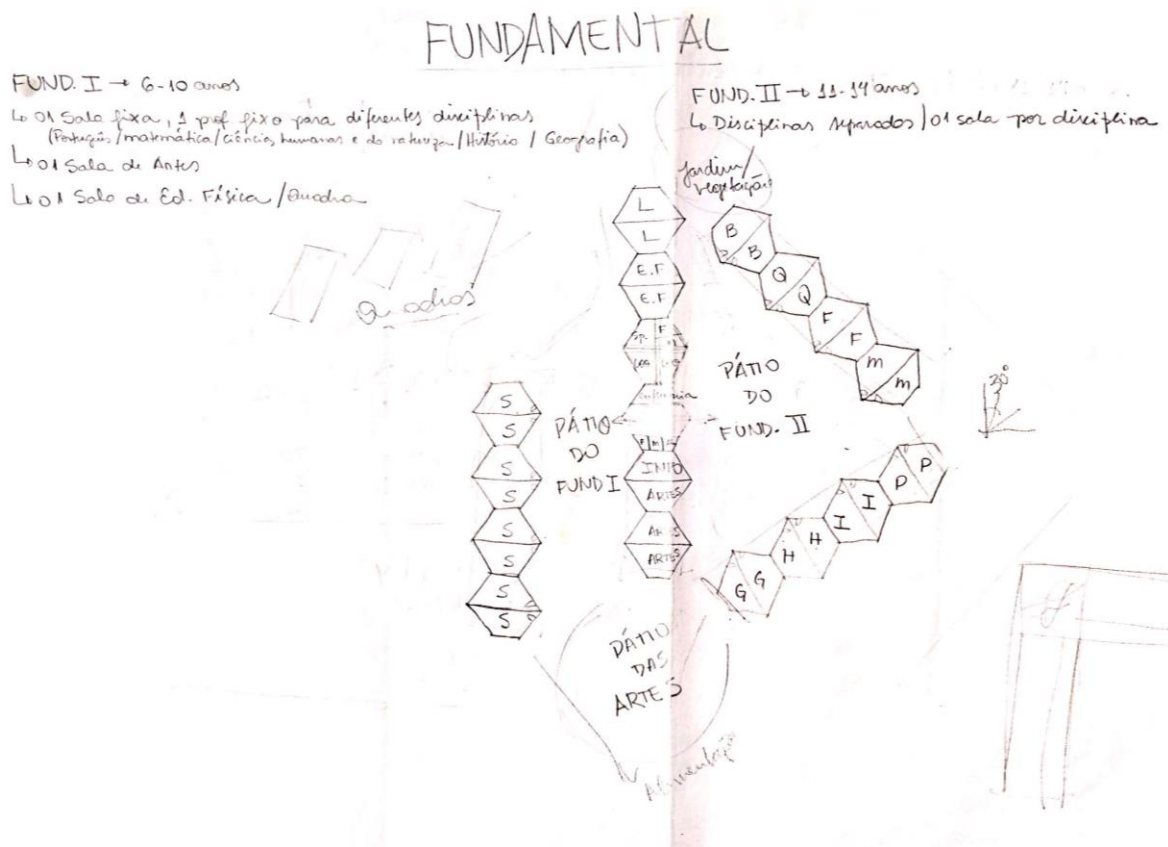 FUNDAMENTAL
FUND. I → 6-10 anos
↳ 01 Sala fixa, 1 prof fixo para diferentes disciplinas
(Português/matemática/ciências humanas e da natureza/História/Geografia)
↳ 01 Sala de Artes
↳ 01 Sala de Ed. Física/Quadra
FUND. II → 11-14 anos
↳ Disciplinas separados/01 sala por disciplina
Jardim/
vegetação
Quadras
L
L
E.F
E.F
F
B
B
Q
Q
F
F
m
m
30°
PÁTIO
DO
FUND. II
S
S
S
S
S
S
S
S
PÁTIO
DO
FUND I
INFO
ARTES
ARTES
ARTES
P
P
I
I
H
H
G
G
PÁTIO
DAS
ARTES
Alimentação